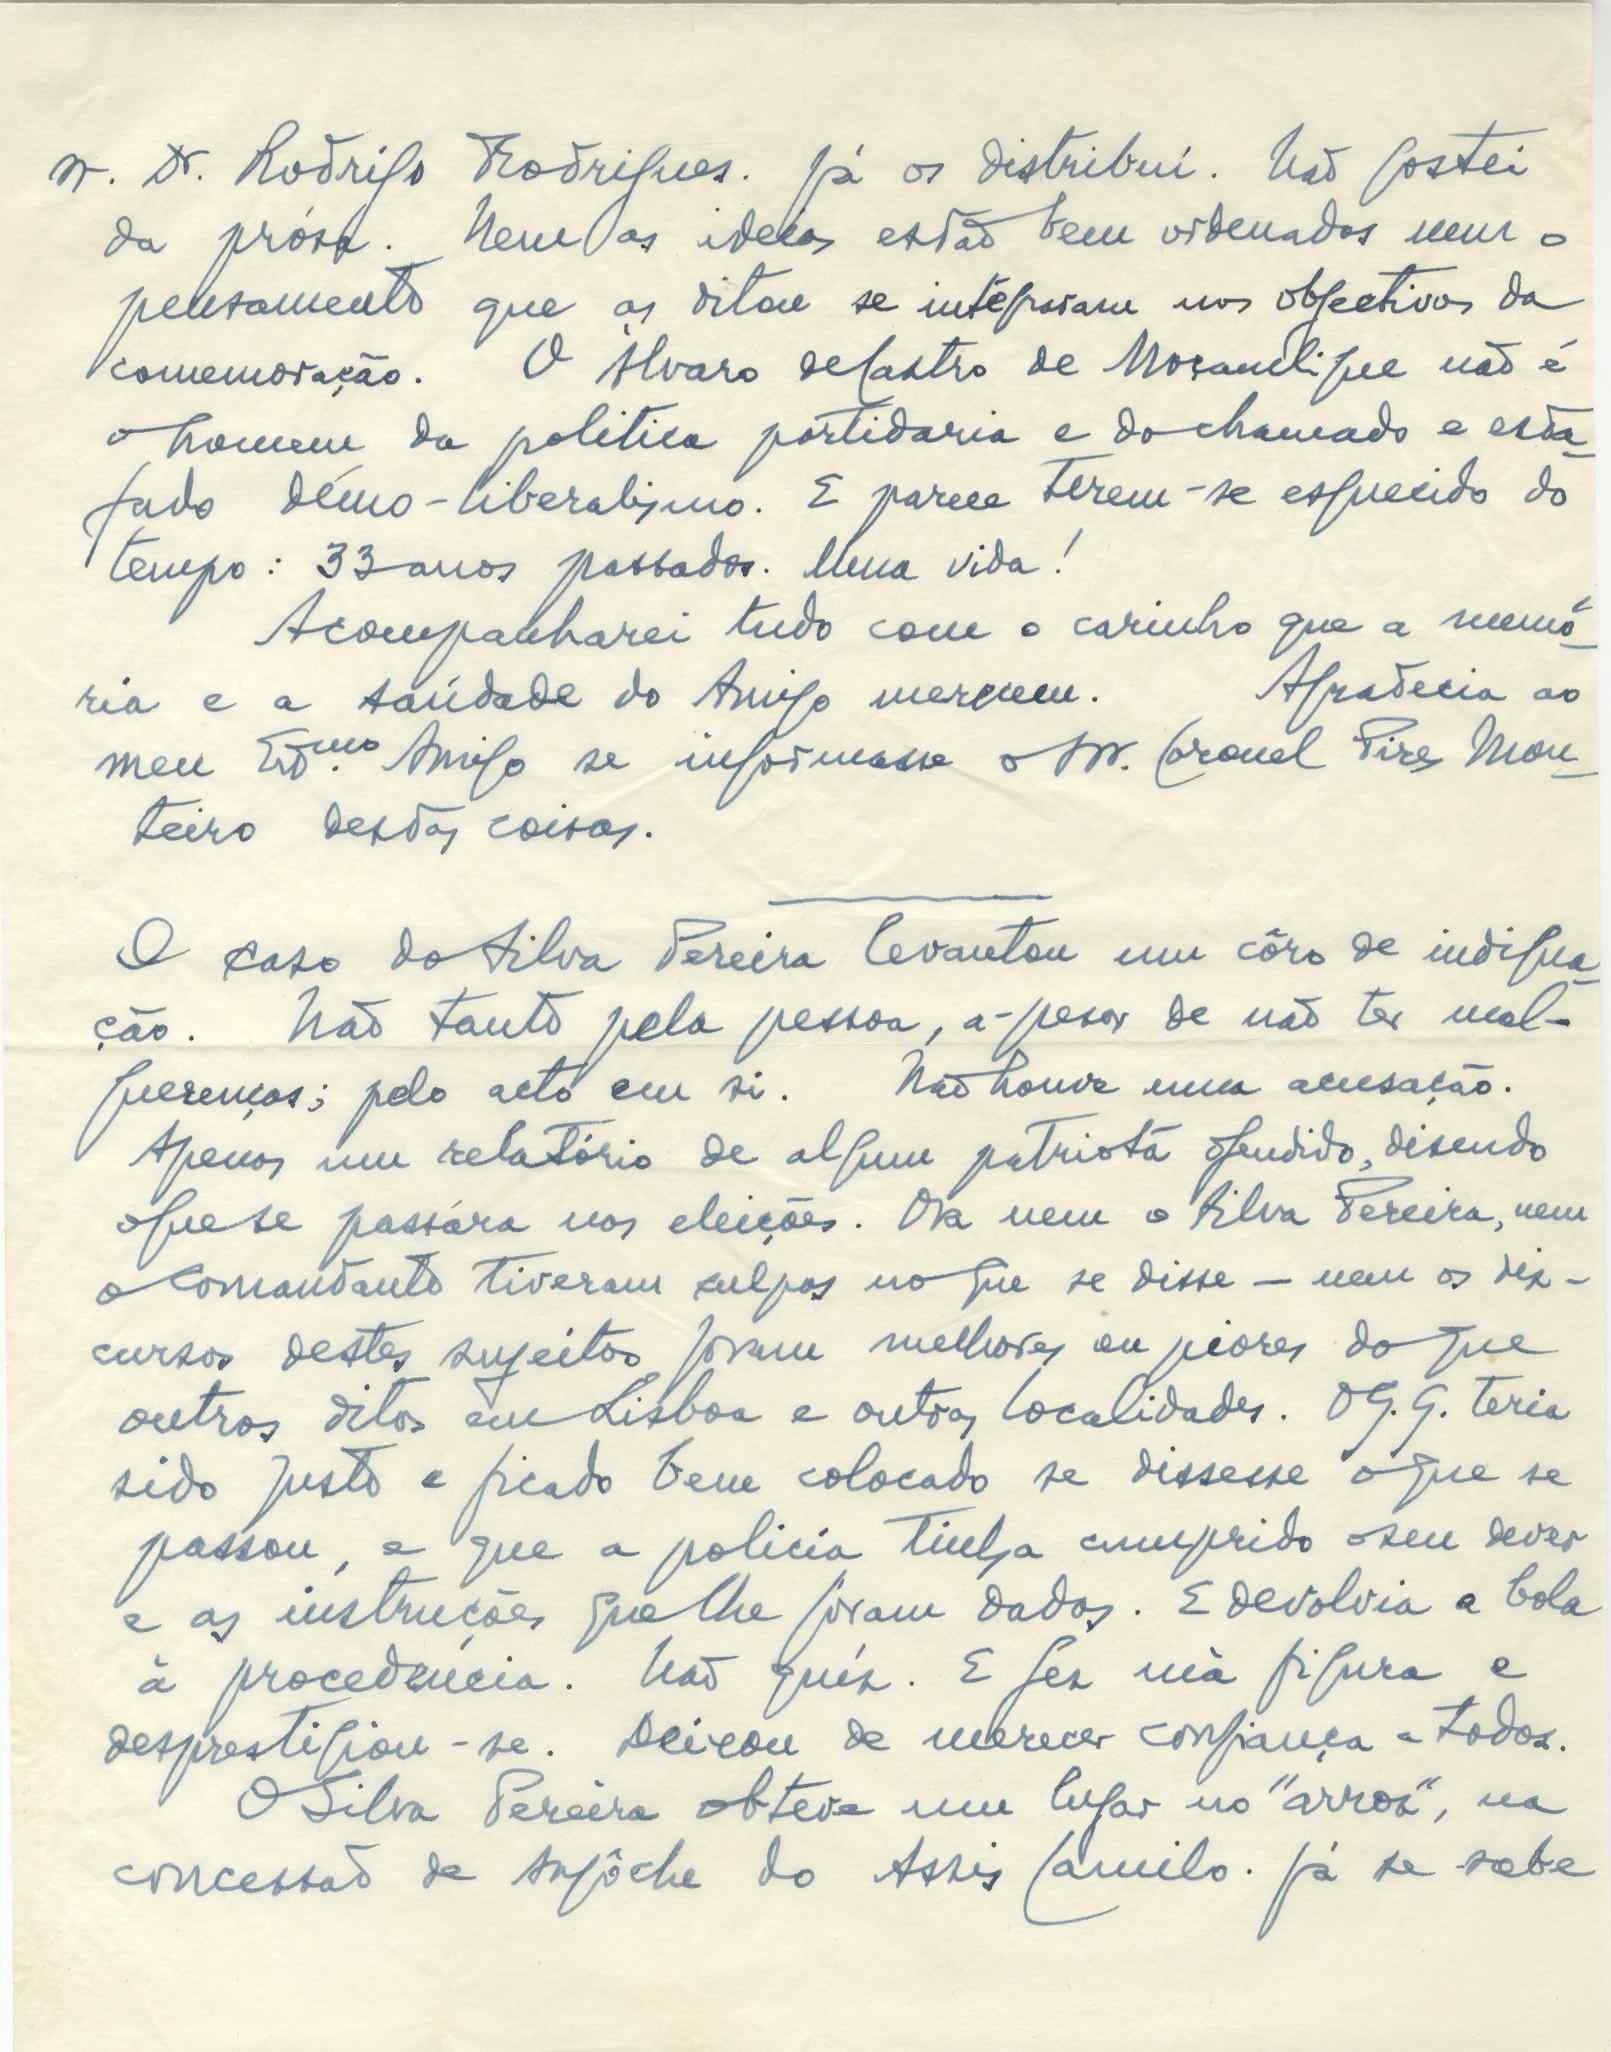 sr. Dr. Rodrigo Rodrigues. Já os distribuí. Não gostei
da prósa. Nem as ideias estão bem ordenadas nem o
pensamento que as ditou se integraram nos objectivos da
comemoração. O Álvaro de Castro de Moçambique não é
o homem da politica partidaria e do chamado e esta-
fado démo-liberalismo. E parece terem-se esquecido do
tempo: 33 anos passados. Uma vida!
Acompanharei tudo com o carinho que a memó-
ria e a saúdade do Amigo merecem. Agradecia ao
meu Exmo. Amigo se informasse o Sr. Coronel Pires Mon-
teiro destas coisas.
O caso do Silva Pereira levantou um côro de indigna-
ção. Não tanto pela pessoa, a-pesar de não ter mal-
querenças; pelo acto em si. Não houve uma acusação.
Apenas um relatório de algum patriota ofendido, disendo
o que se passára nas eleições. Ora nem o Silva Pereira, nem
o Comandante tiveram culpas no que se disse — nem os dis-
cursos destes sujeitos foram melhores ou piores do que
outros ditos em Lisboa e outras localidades. O G. G. teria
sido justo e ficado bem colocado se dissesse o que se
passou, e que a policia tinha cumprido o seu dever
e as instruções que lhe foram dadas. E devolvia a bola
à procedencia. Não quís. E fes má figura e
desprestigiou-se. Deixou de merecer confiança a todos.
O Silva Pereira obteve um lugar no "arros", na
concessão de Angôche do Assis Camilo. Já se sabe